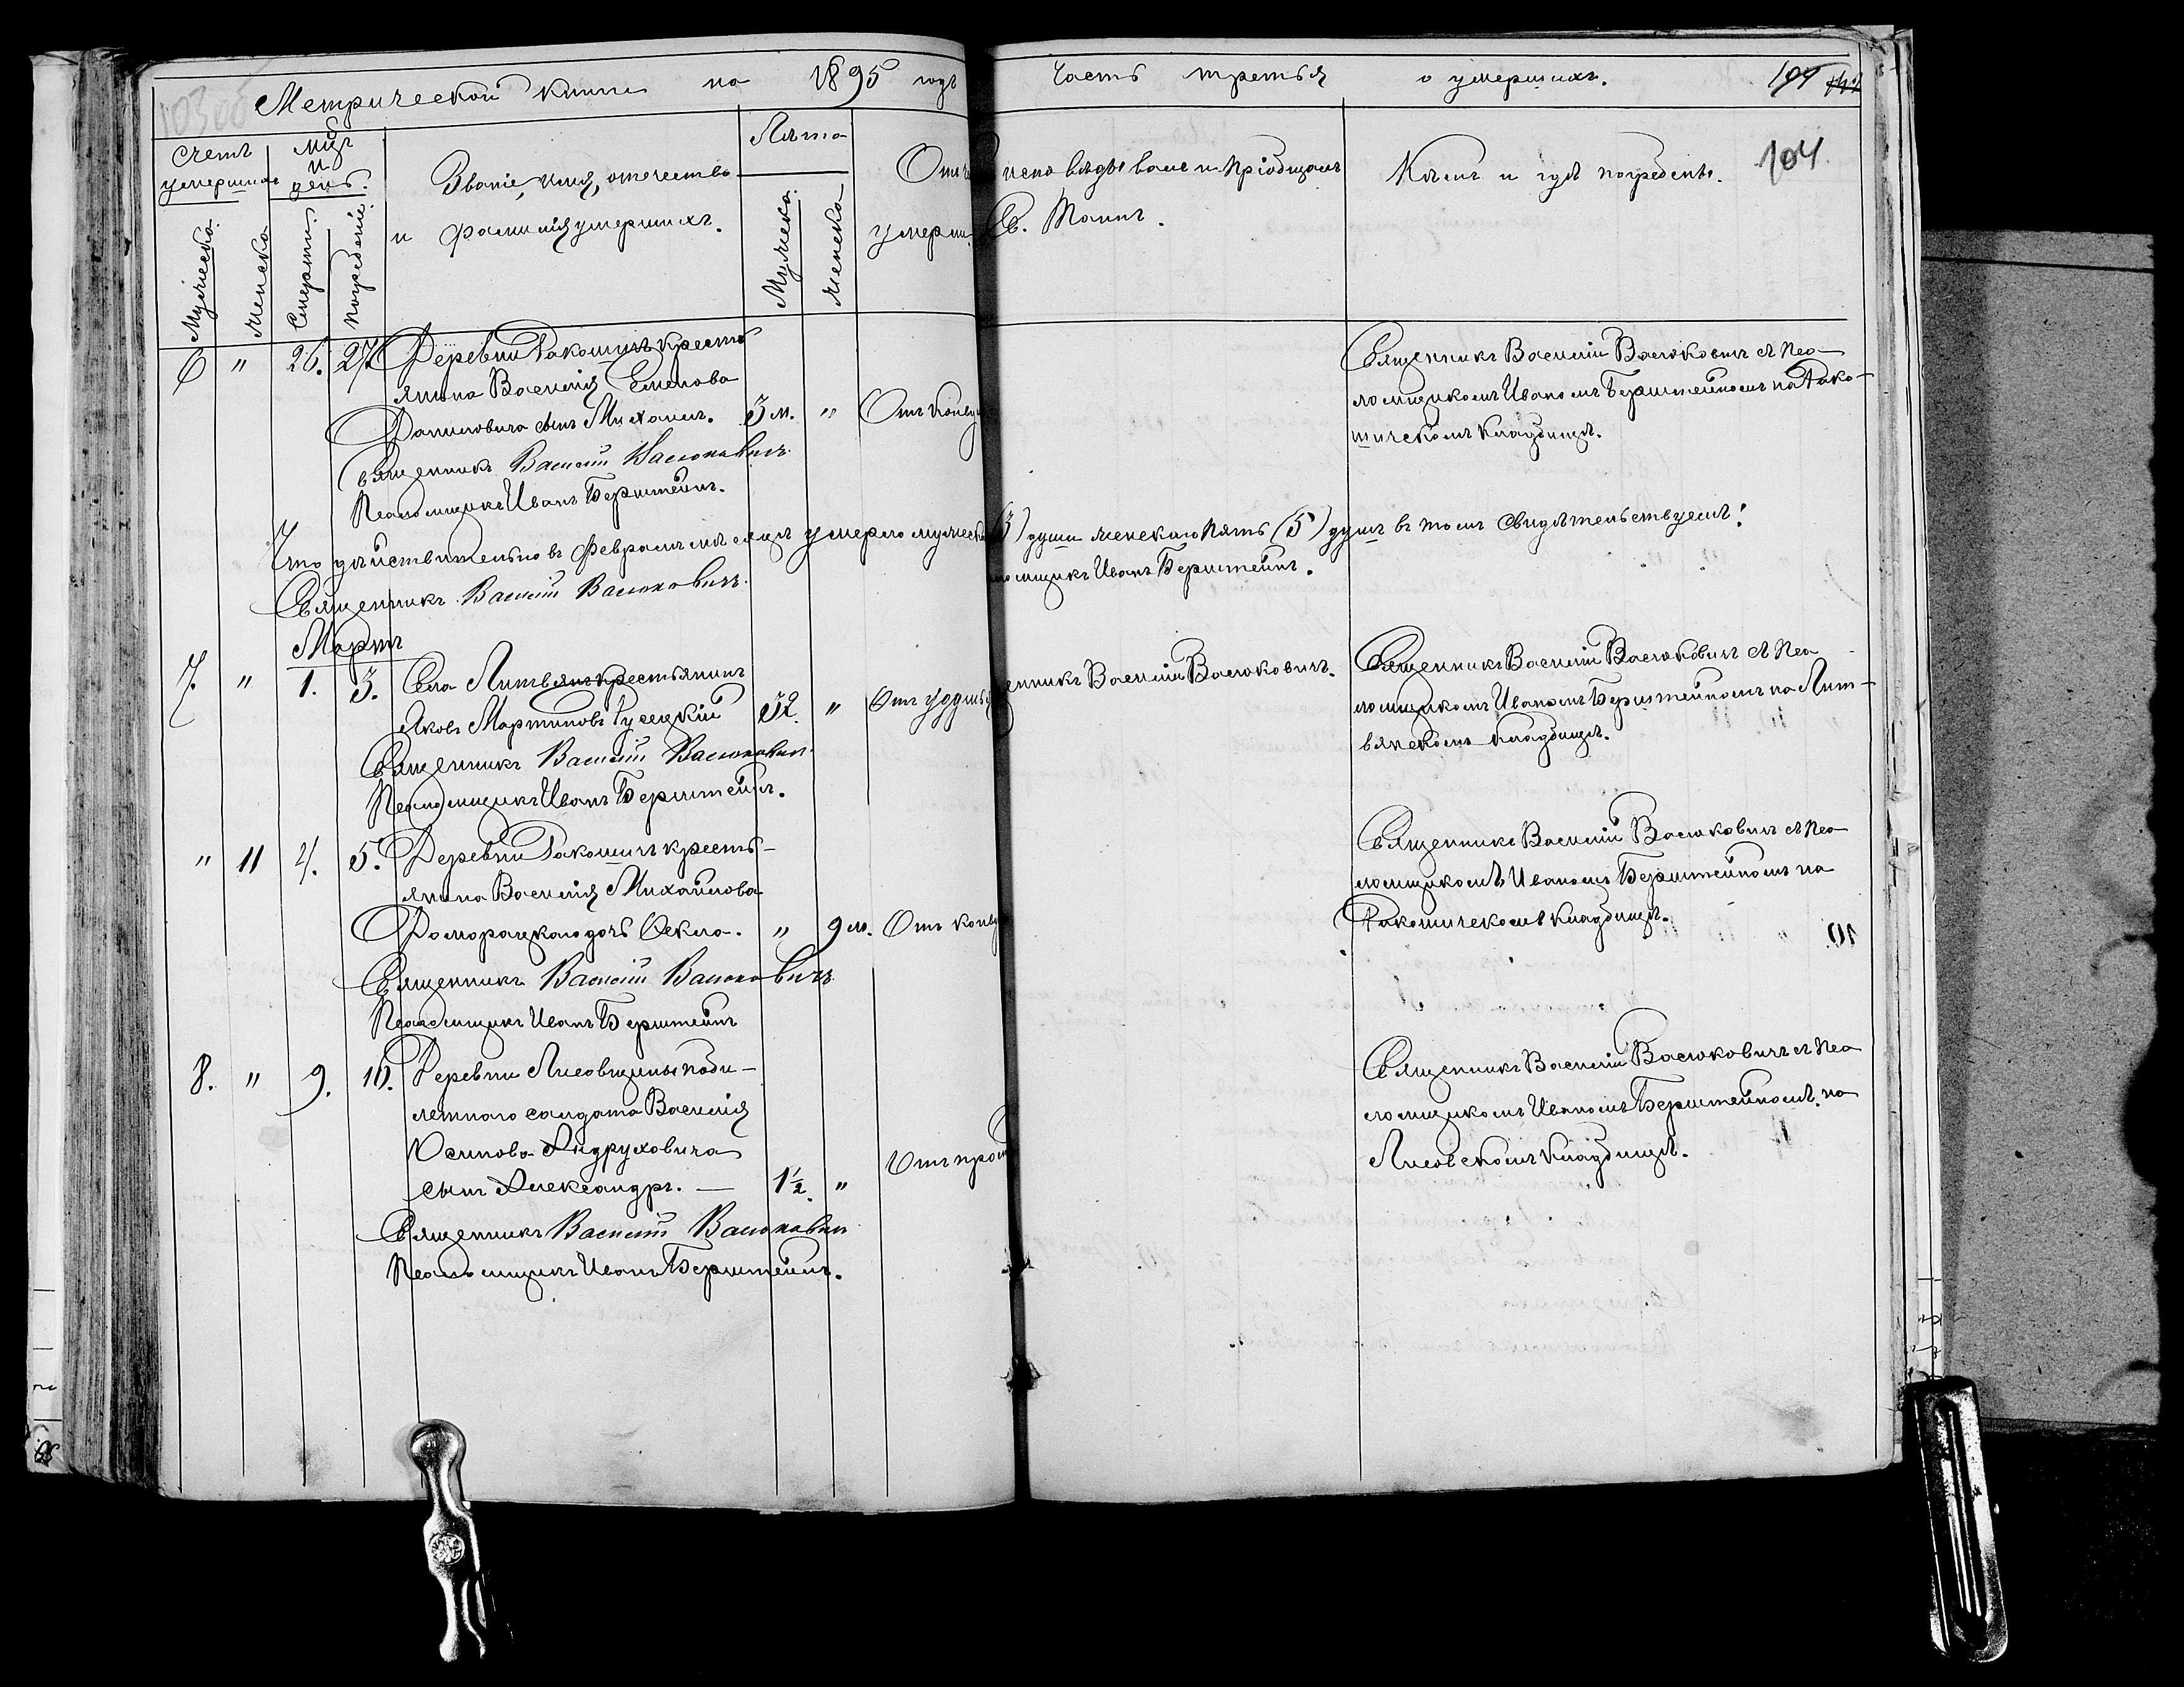 Метрической книги на 1895 годъ часть третья о умершихъ.
104
Счетъ умершихъ
Мужеска.
Женска
Мцъ и день.
Смерти.
Погребенія.
Званіе, имя, отчество
и фамилія умершихъ.
Лѣта
Мужеска.
Женска
Отъ
умерш.
исповѣдывалъ и пріобщалъ
Св. Таинъ.
Кѣмъ и гдѣ погребены.
6 " 26. 27. Деревни Ракошичъ кресть
янина Василія Семенова
Даниловича сынъ Михаилъ. 3 м. " Отъ
Священникъ Василій Васюковичъ
Псаломщикъ Иванъ Бернштейнъ.
Священникъ Василій Васюковичъ съ Пса-
ломщикомъ Иваномъ Бернштейномъ на Рако-
шичскомъ кладбищѣ.
Что дѣйствительно въ Февралѣ мѣсяцѣ умерло мужеска (3) души женскаго пять (5) душъ въ томъ свидѣтельствуемъ:
Священникъ Василій Васюковичъ.
ломщикъ Иванъ Бернштейнъ.
Мартъ
7. " 1. 3. Села Литвянъ крестьянинъ
Яковъ Мартиновъ Русецкій 52. " Отъ
Священникъ Василій Васюковичъ
Псаломщикъ Иванъ Бернштейнъ.
енникъ Василій Васюковичъ.
Священникъ Василій Васюковичъ съ Пса-
ломщикомъ Иваномъ Бернштейномъ на Лит-
вянскомъ кладбищѣ.
" 11 4. 5. Деревни Ракошичъ кресть-
янина Василія Михайлова
Доморацкаго дочь Фекла. " 9 м. Отъ
Священникъ Василій Васюковичъ
Псаломщикъ Иванъ Бернштейнъ
Священникъ Василій Васюковичъ съ Пса-
ломщикомъ Иваномъ Бернштейномъ на
Ракошичскомъ кладбищѣ.
8. " 9. 10. Деревни Лисовщины
Василія
Осипова Андруховича
сынъ Александръ. — 1½. "
Священникъ Василій Васюковичъ
Псаломщикъ Иванъ Бернштейнъ.
Священникъ Василій Васюковичъ съ Пса-
ломщикомъ Иваномъ Бернштейномъ на
Лисовскомъ кладбищѣ.